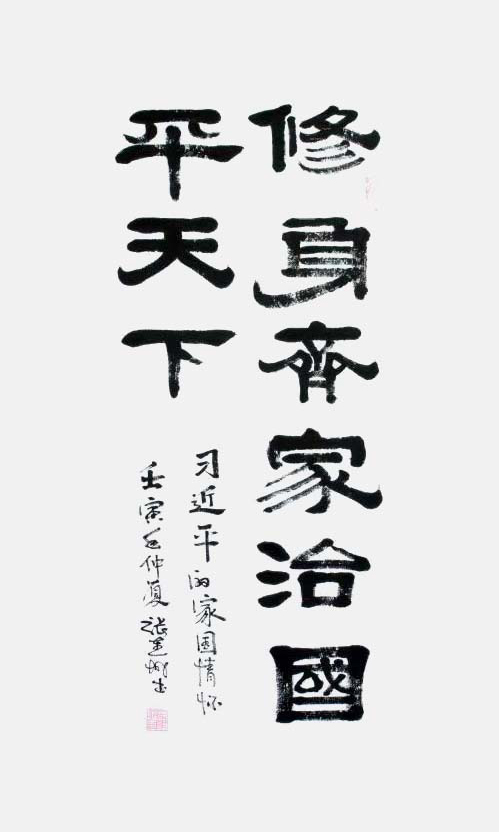 修身齊家治國
平天下
习近平的家国情怀
壬寅年仲夏張建